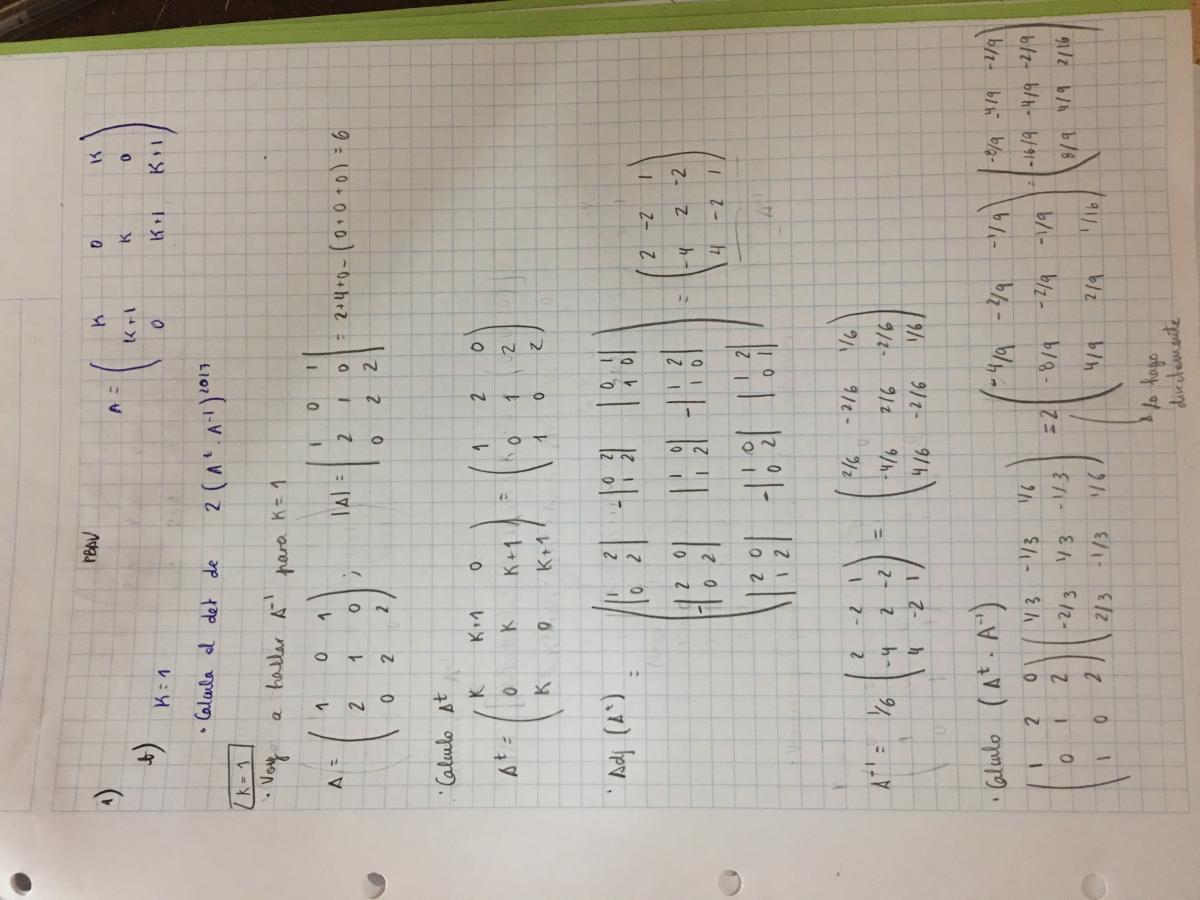 PBAU
1)
A = ( K 0 K
K+1 K 0
0 K+1 K+1 )
b) K=1
· Calcula el det de 2 (Aᵗ · A⁻¹)²⁰¹⁷
K=1
· Voy a hallar A⁻¹ para K=1
A = ( 1 0 1
2 1 0
0 2 2 ) ; |A| = | 1 0 1
2 1 0
0 2 2 | = 2+4+0 - (0+0+0) = 6
· Calculo Aᵗ
Aᵗ = ( K K+1 0
0 K K+1
K 0 K+1 ) = ( 1 2 0
0 1 2
1 0 2 )
· Adj (Aᵗ) = ( |1 2 / 0 2| -|0 2 / 1 2| |0 1 / 1 0|
-|2 0 / 0 2| |1 0 / 1 2| -|1 2 / 1 0|
|2 0 / 1 2| -|1 0 / 0 2| |1 2 / 0 1| ) = ( 2 -2 1
-4 2 -2
4 -2 1 )
A⁻¹ = 1/6 ( 2 -2 1
-4 2 -2
4 -2 1 ) = ( 2/6 -2/6 1/6
-4/6 2/6 -2/6
4/6 -2/6 1/6 )
· Calculo (Aᵗ · A⁻¹)
( 1 2 0
0 1 2
1 0 2 ) ( 1/3 -1/3 1/6
-2/3 1/3 -1/3
2/3 -1/3 1/6 ) = 2 ( -4/9 -2/9 -1/9
-8/9 -2/9 -1/9
4/9 2/9 1/16 ) = ( -8/9 -4/9 -2/9
-16/9 -4/9 -2/9
8/9 4/9 2/16 )
lo hago
directamente